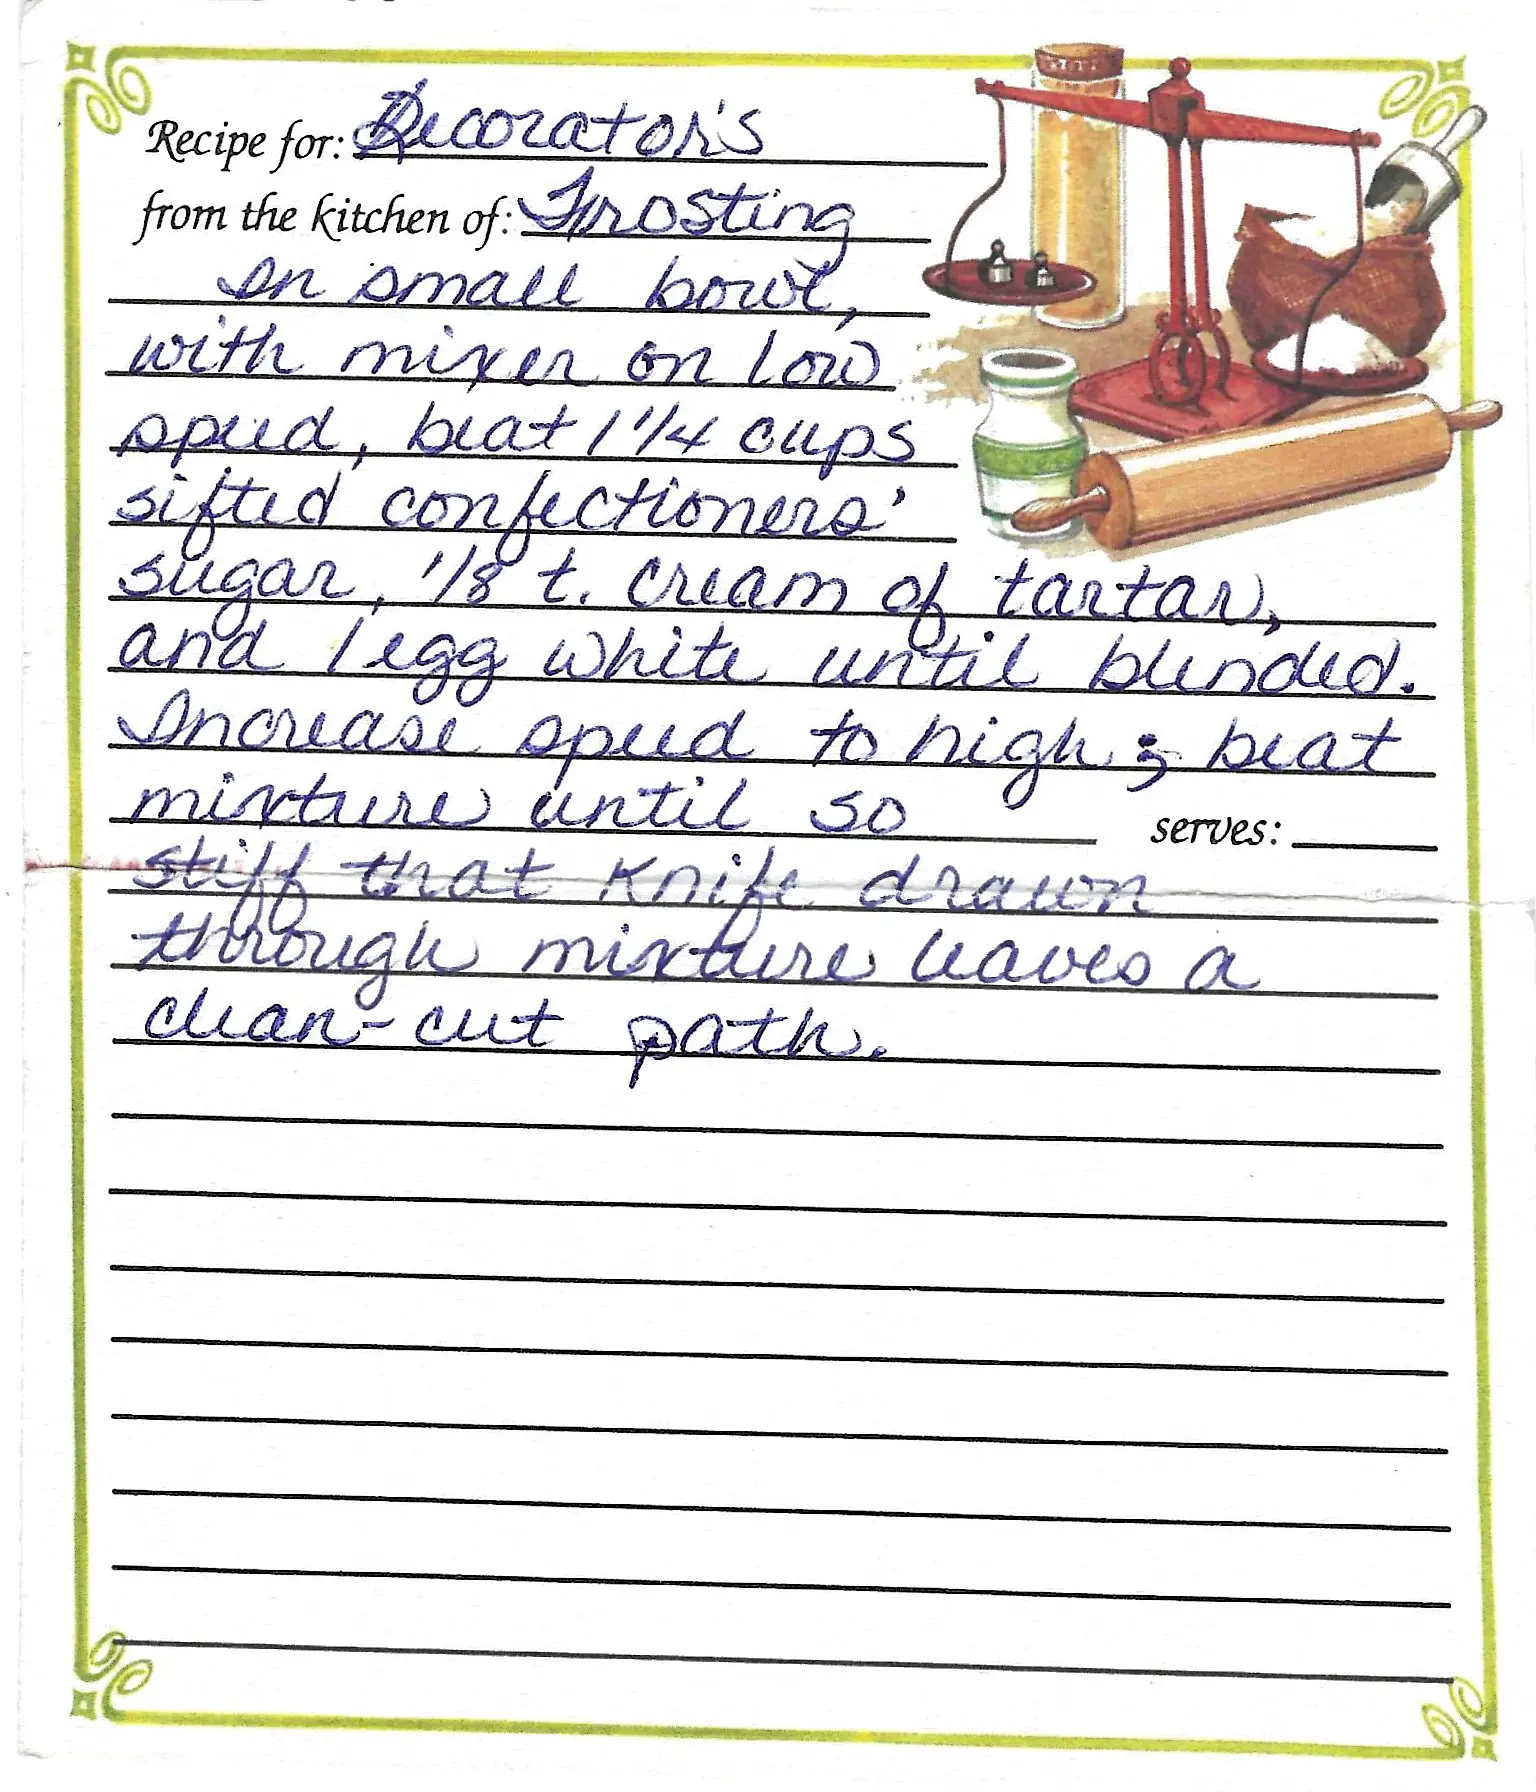 Recipe for: Decorator's
from the kitchen of: Frosting
In small bowl,
with mixer on low
speed, beat 1 1/4 cups
sifted confectioners'
sugar, 1/8 t. cream of tartar,
and 1 egg white until blended.
Increase speed to high; beat
mixture until so serves:
stiff that knife drawn
through mixture leaves a
clean-cut path.